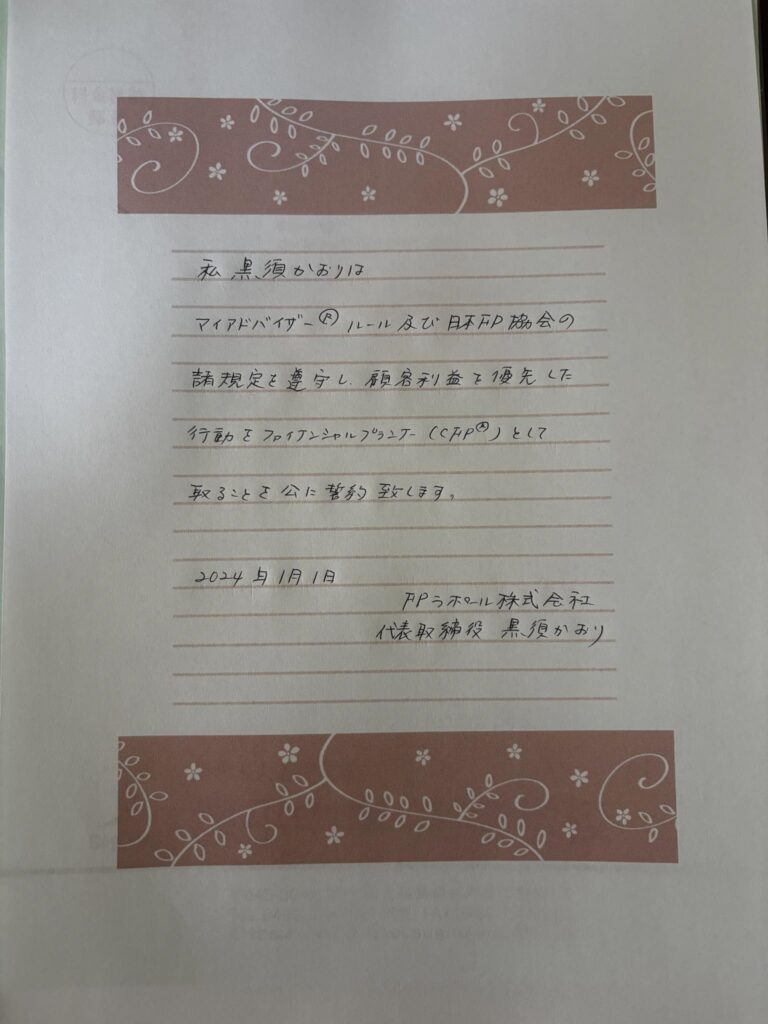 私 黒須かおりは
マイアドバイザー®ルール及び日本FP協会の
諸規定を遵守し、顧客利益を優先した
行動をファイナンシャルプランナー(CFP®)として
取ることを公に誓約致します。
2024年1月1日
FPラポール株式会社
代表取締役 黒須かおり